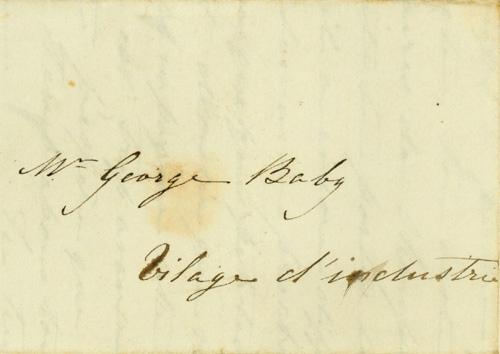 Mr George Baby
Vilage d'industrie